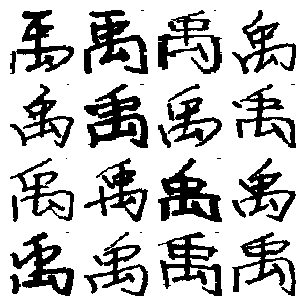 禹禹禹禹
禹禹禹禹
禹禹禹禹
禹禹禹禹